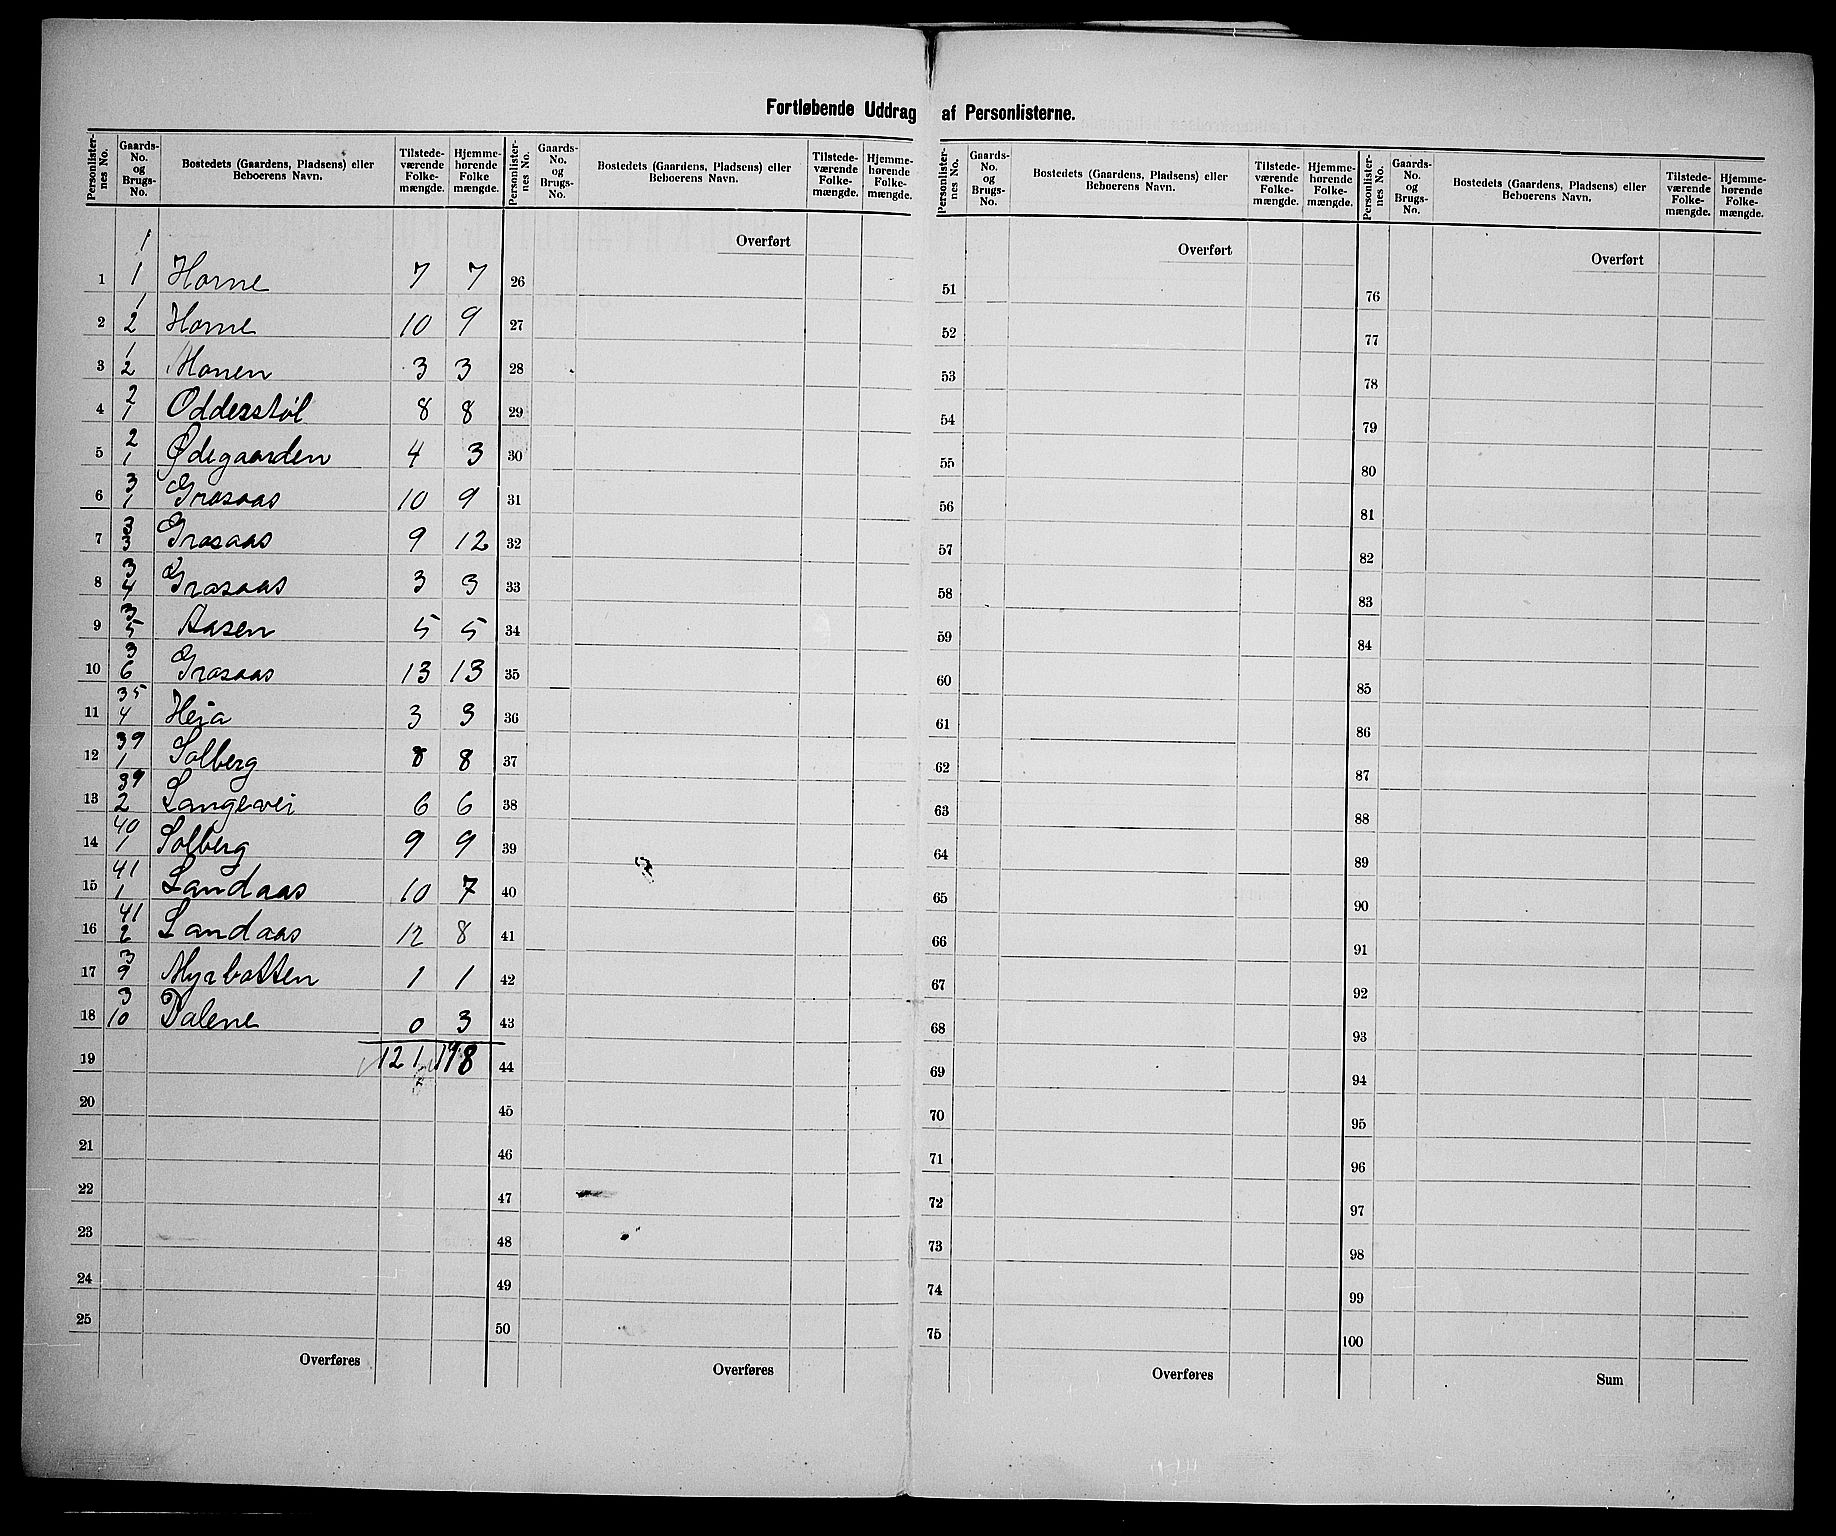 Fortløbende Uddrag af Personlisterne.
Personlister-nes No. | Gaards-No. og Brugs-No. | Bostedets (Gaardens, Pladsens) eller Beboerens Navn. | Tilstede-værende Folke-mængde. | Hjemme-hørende Folke mængde. | Personlister-nes No. | Gaards-No. og Brugs-No. | Bostedets (Gaardens, Pladsens) eller Beboerens Navn. | Tilstede-værende Folke-mængde. | Hjemme-hørende Folke-mængde. | Personlister-nes No. | Gaards-No. og Brugs-No. | Bostedets (Gaardens, Pladsens) eller Beboerens Navn. | Tilstede-værende Folke-mængde. | Hjemme-hørende Folke-mængde. | Personlister-nes No. | Gaards-No. og Brugs-No. | Bostedets (Gaardens, Pladsens) eller Beboerens Navn. | Tilstede-værende Folke-mængde. | Hjemme-hørende Folke-mængde.
Overført Overført Overført
1 1/1 Horne 7 7 26 51 76
2 1/2 Horne 10 9 27 52 77
3 1/2 Monen 3 3 28 53 78
4 2/1 Odderstøl 8 8 29 54 79
5 2/1 Ødegaarden 4 3 30 55 80
6 3/1 Grosaas 10 9 31 56 81
7 3/3 Grosaas 9 12 32 57 82
8 3/4 Grosaas 3 3 33 58 83
9 3/5 Aasen 5 5 34 59 84
10 3/6 Grosaas 13 13 35 60 85
11 35/4 Heia 3 3 36 61 86
12 39/1 Solberg 8 8 37 62 87
13 39/2 Langevei 6 6 38 63 88
14 40/1 Solberg 9 9 39 64 89
15 41/1 Landaas 10 7 40 65 90
16 41/2 Landaas 12 8 41 66 91
17 3/9 Myrbotten 1 1 42 67 92
18 3/10 Dalene 0 3 43 68 93
19 121 118 44 69 94
20 45 70 95
21 46 71 96
22 47 72 97
23 48 73 98
24 49 74 99
25 50 75 100
Overføres Overføres Overføres Sum